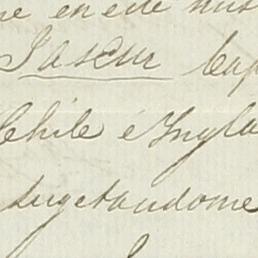 en este mis
Laseur Cap
Chile é Yngla
sugetandome